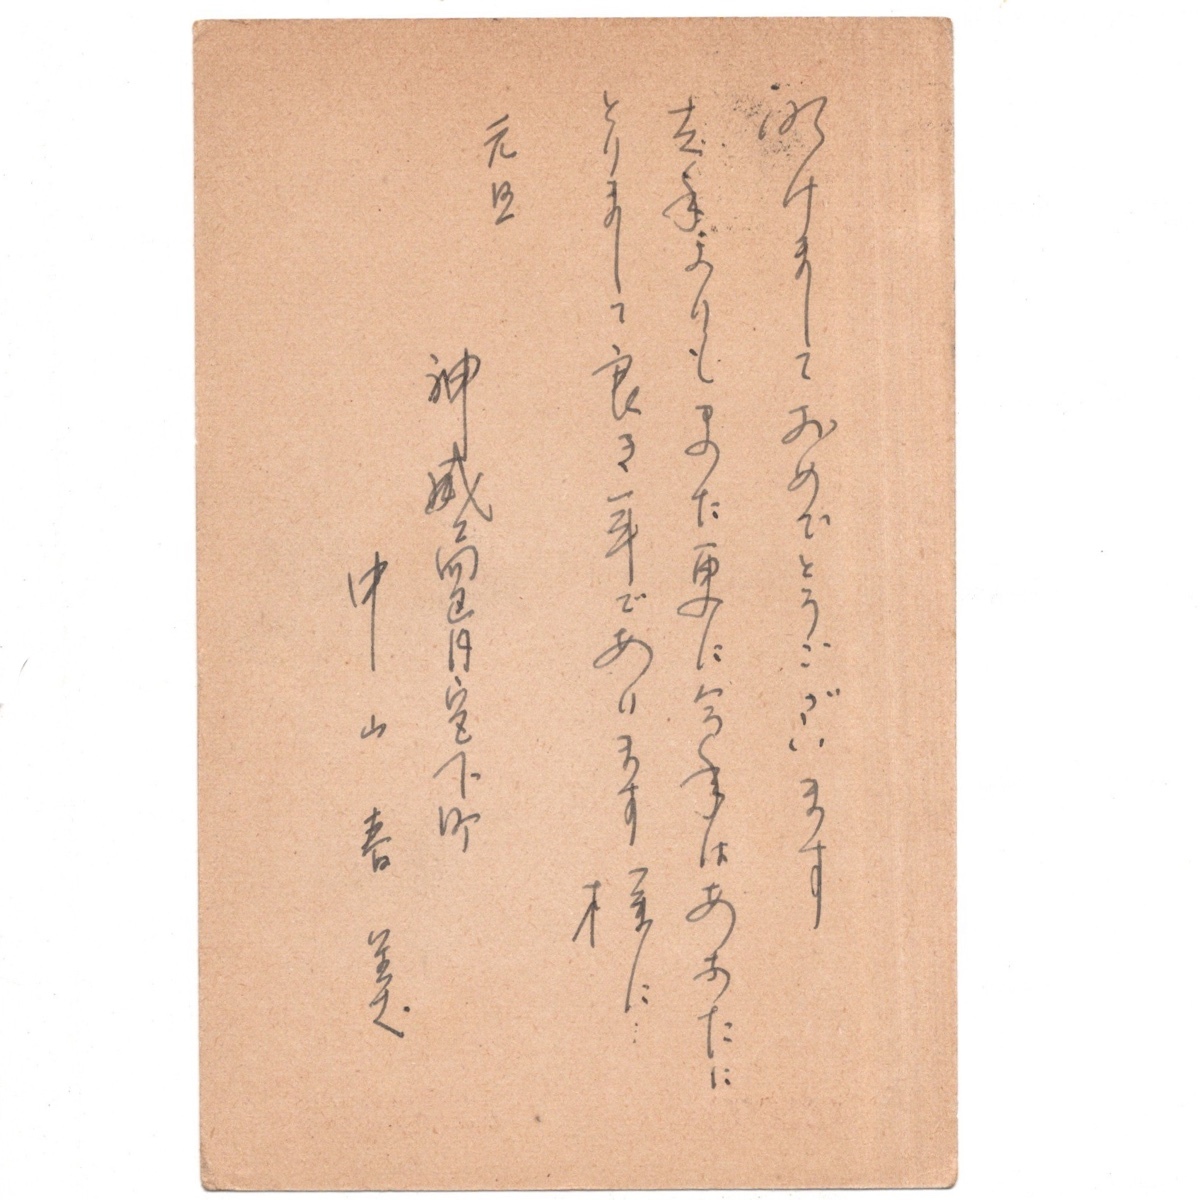 明けましておめでとうございます
去年よりもまた更に今年はあなたに
とりまして良き年であります様に…
元旦
神威 宮下町
中山春美